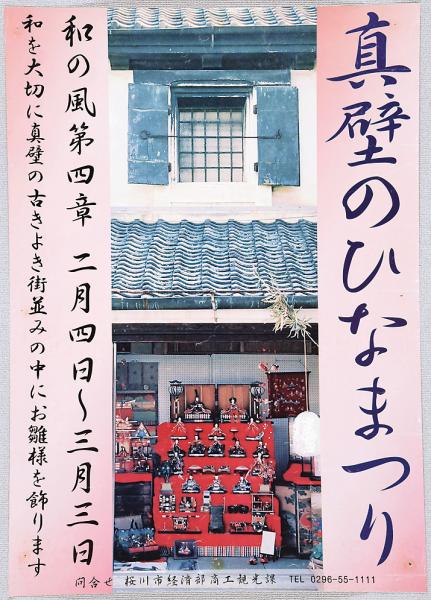 真壁のひなまつり
和の風第四章 二月四日～三月三日
和を大切に真壁の古きよき街並みの中にお雛様を飾ります
問合せ 桜川市経済部商工観光課 TEL 0296-55-1111